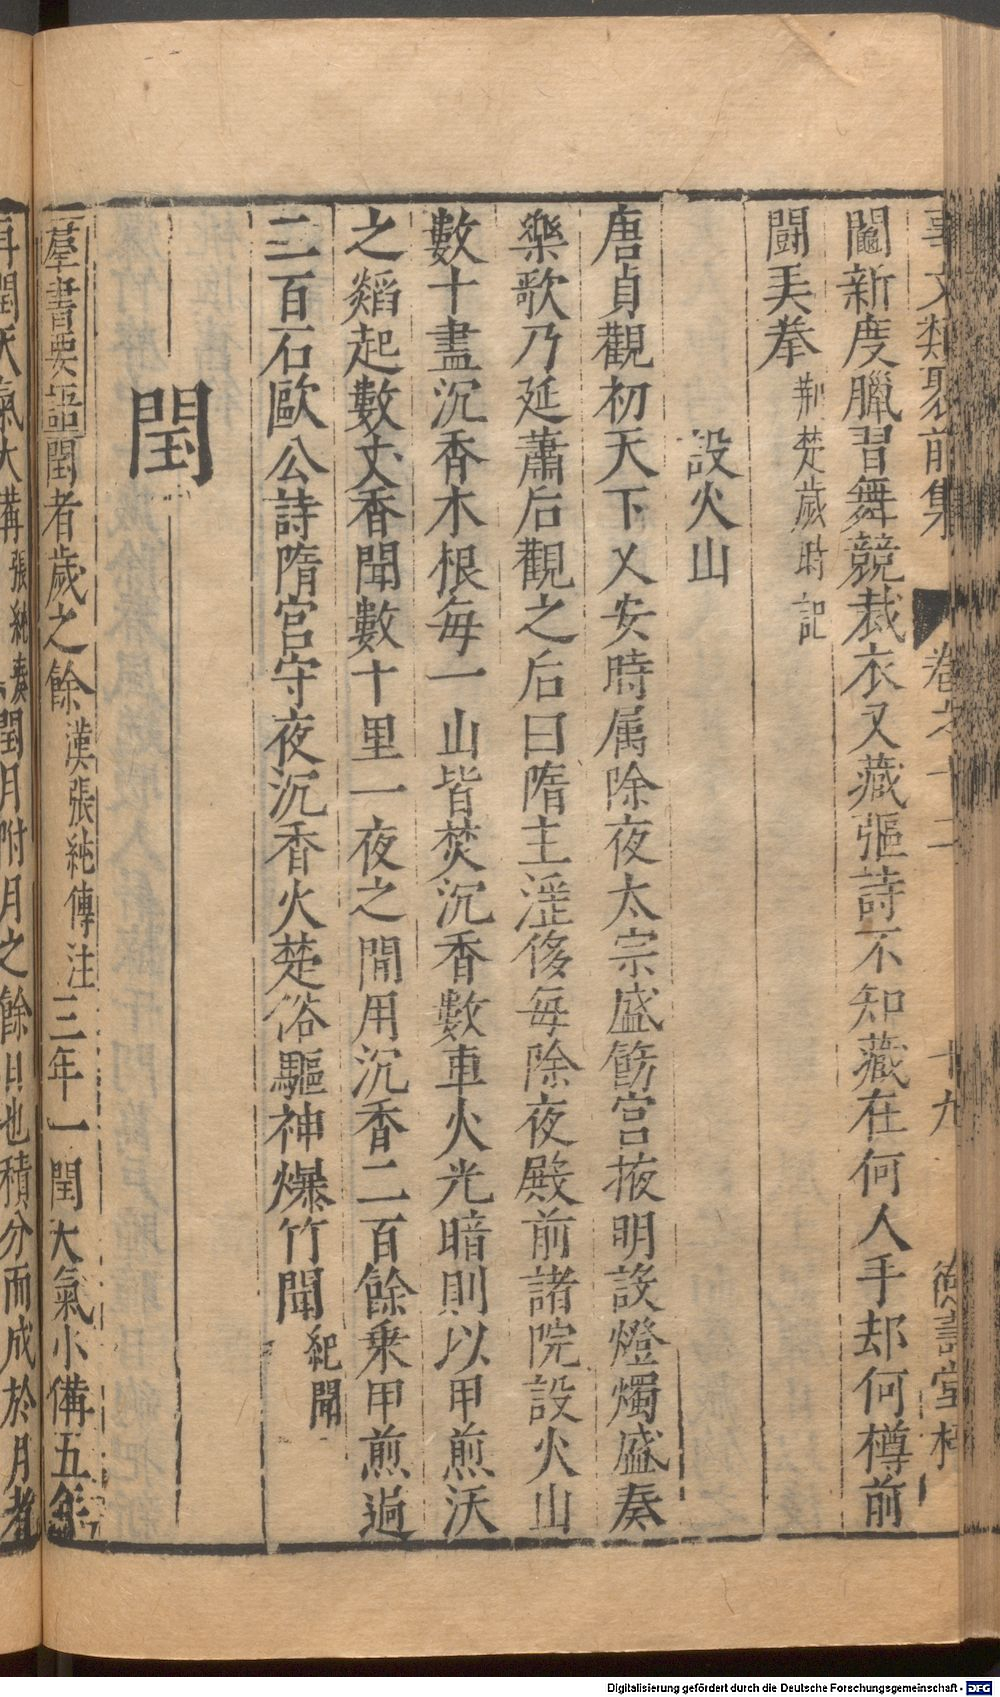 事文類聚前集 卷之十二 十九 德壽堂梓
鬮新度臘習舞競裁衣又藏彄詩不知藏在何人手却何樽前
鬪美拳 荆楚歲時記
設火山
唐貞觀初天下乂安時属除夜太宗盛飭宫掖明設燈燭盛奏
樂歌乃延蕭后觀之后曰隋主淫侈每除夜殿前諸院設火山
數十盡沉香木根每一山皆焚沉香數車火光暗則以甲煎沃
之燄起數丈香聞數十里一夜之間用沉香二百餘乗甲煎過
二百石歐公詩隋宫守夜沉香火楚俗驅神爆竹聞 紀聞
閏
羣書要語閏者歲之餘 漢張純傳注 三年一閏天氣小備五年
再閏天氣大備 張純奏 閏月附月之餘日也積分而成於月者
Digitalisierung gefördert durch die Deutsche Forschungsgemeinschaft - DFG